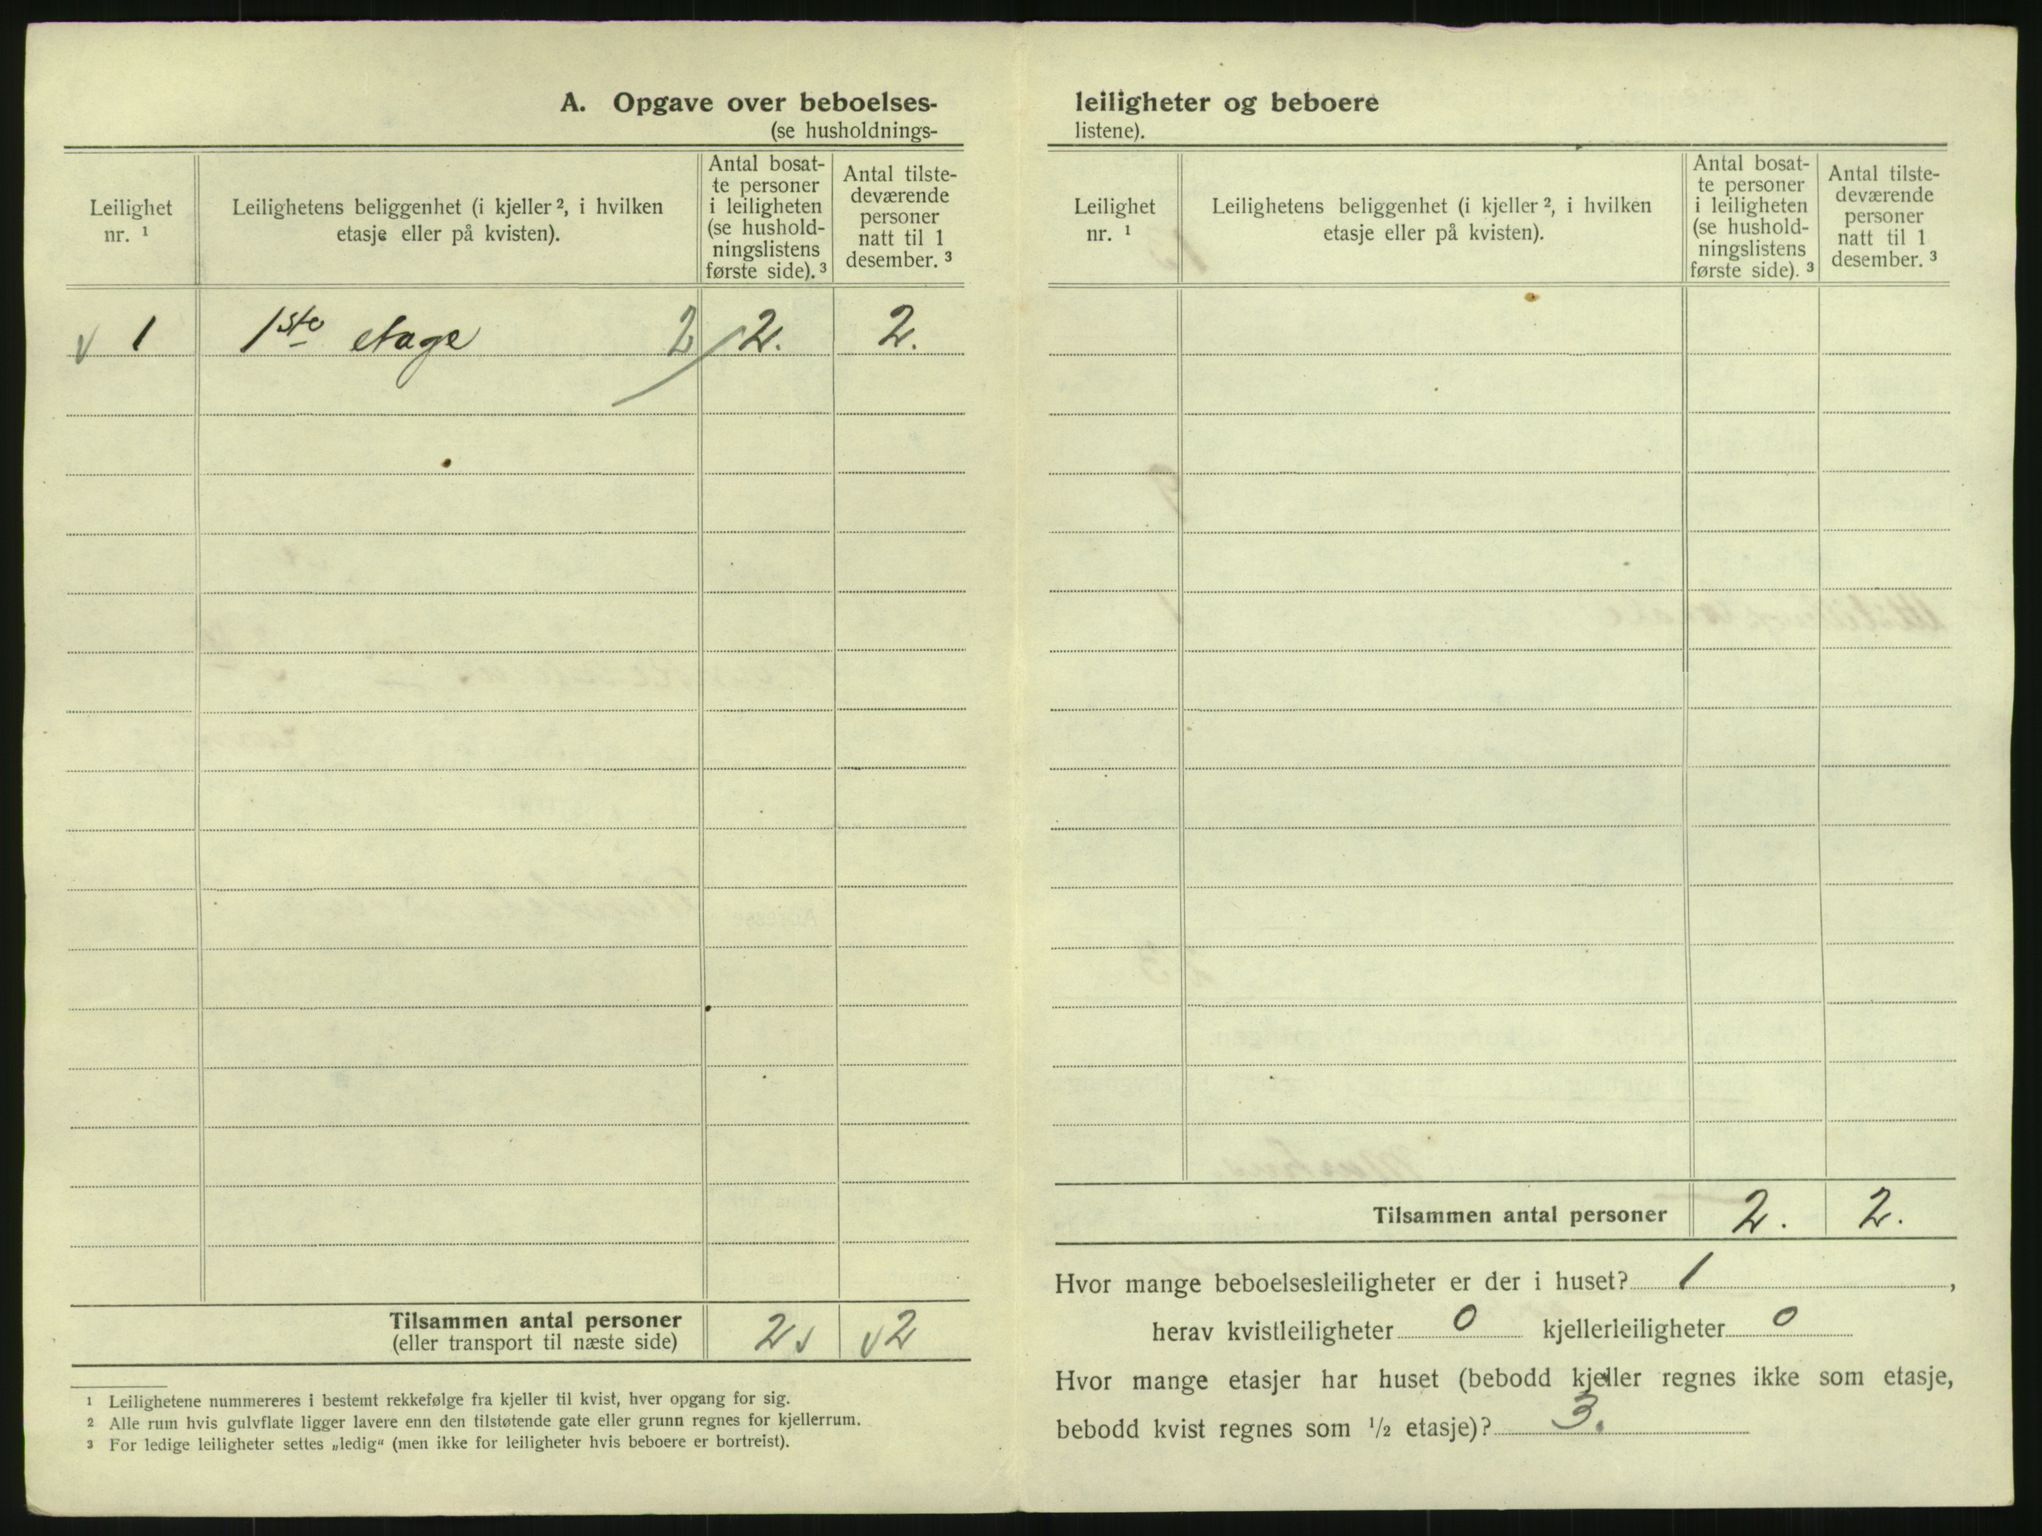 A. Opgave over beboelses-
(se husholdnings-
Leilighet
nr. ¹
Leilighetens beliggenhet (i kjeller ², i hvilken
etasje eller på kvisten).
Antal bosat-
te personer
i leiligheten
(se hushold-
ningslistens
første side). ³
Antal tilste-
deværende
personer
natt til 1
desember. ³
v 1 1ste etage 2 2. 2.
Tilsammen antal personer 2 v v 2
(eller transport til næste side)
¹ Leilighetene nummereres i bestemt rekkefølge fra kjeller til kvist, hver opgang for sig.
² Alle rum hvis gulvflate ligger lavere enn den tilstøtende gate eller grunn regnes for kjellerrum.
³ For ledige leiligheter settes „ledig“ (men ikke for leiligheter hvis beboere er bortreist).
leiligheter og beboere
listene).
Leilighet
nr. ¹
Leilighetens beliggenhet (i kjeller ², i hvilken
etasje eller på kvisten).
Antal bosat-
te personer
i leiligheten
(se hushold-
ningslistens
første side). ³
Antal tilste-
deværende
personer
natt til 1
desember. ³
Tilsammen antal personer 2. 2.
Hvor mange beboelsesleiligheter er der i huset? 1,
herav kvistleiligheter 0 kjellerleiligheter 0
Hvor mange etasjer har huset (bebodd kjeller regnes ikke som etasje,
bebodd kvist regnes som ½ etasje)? 3.